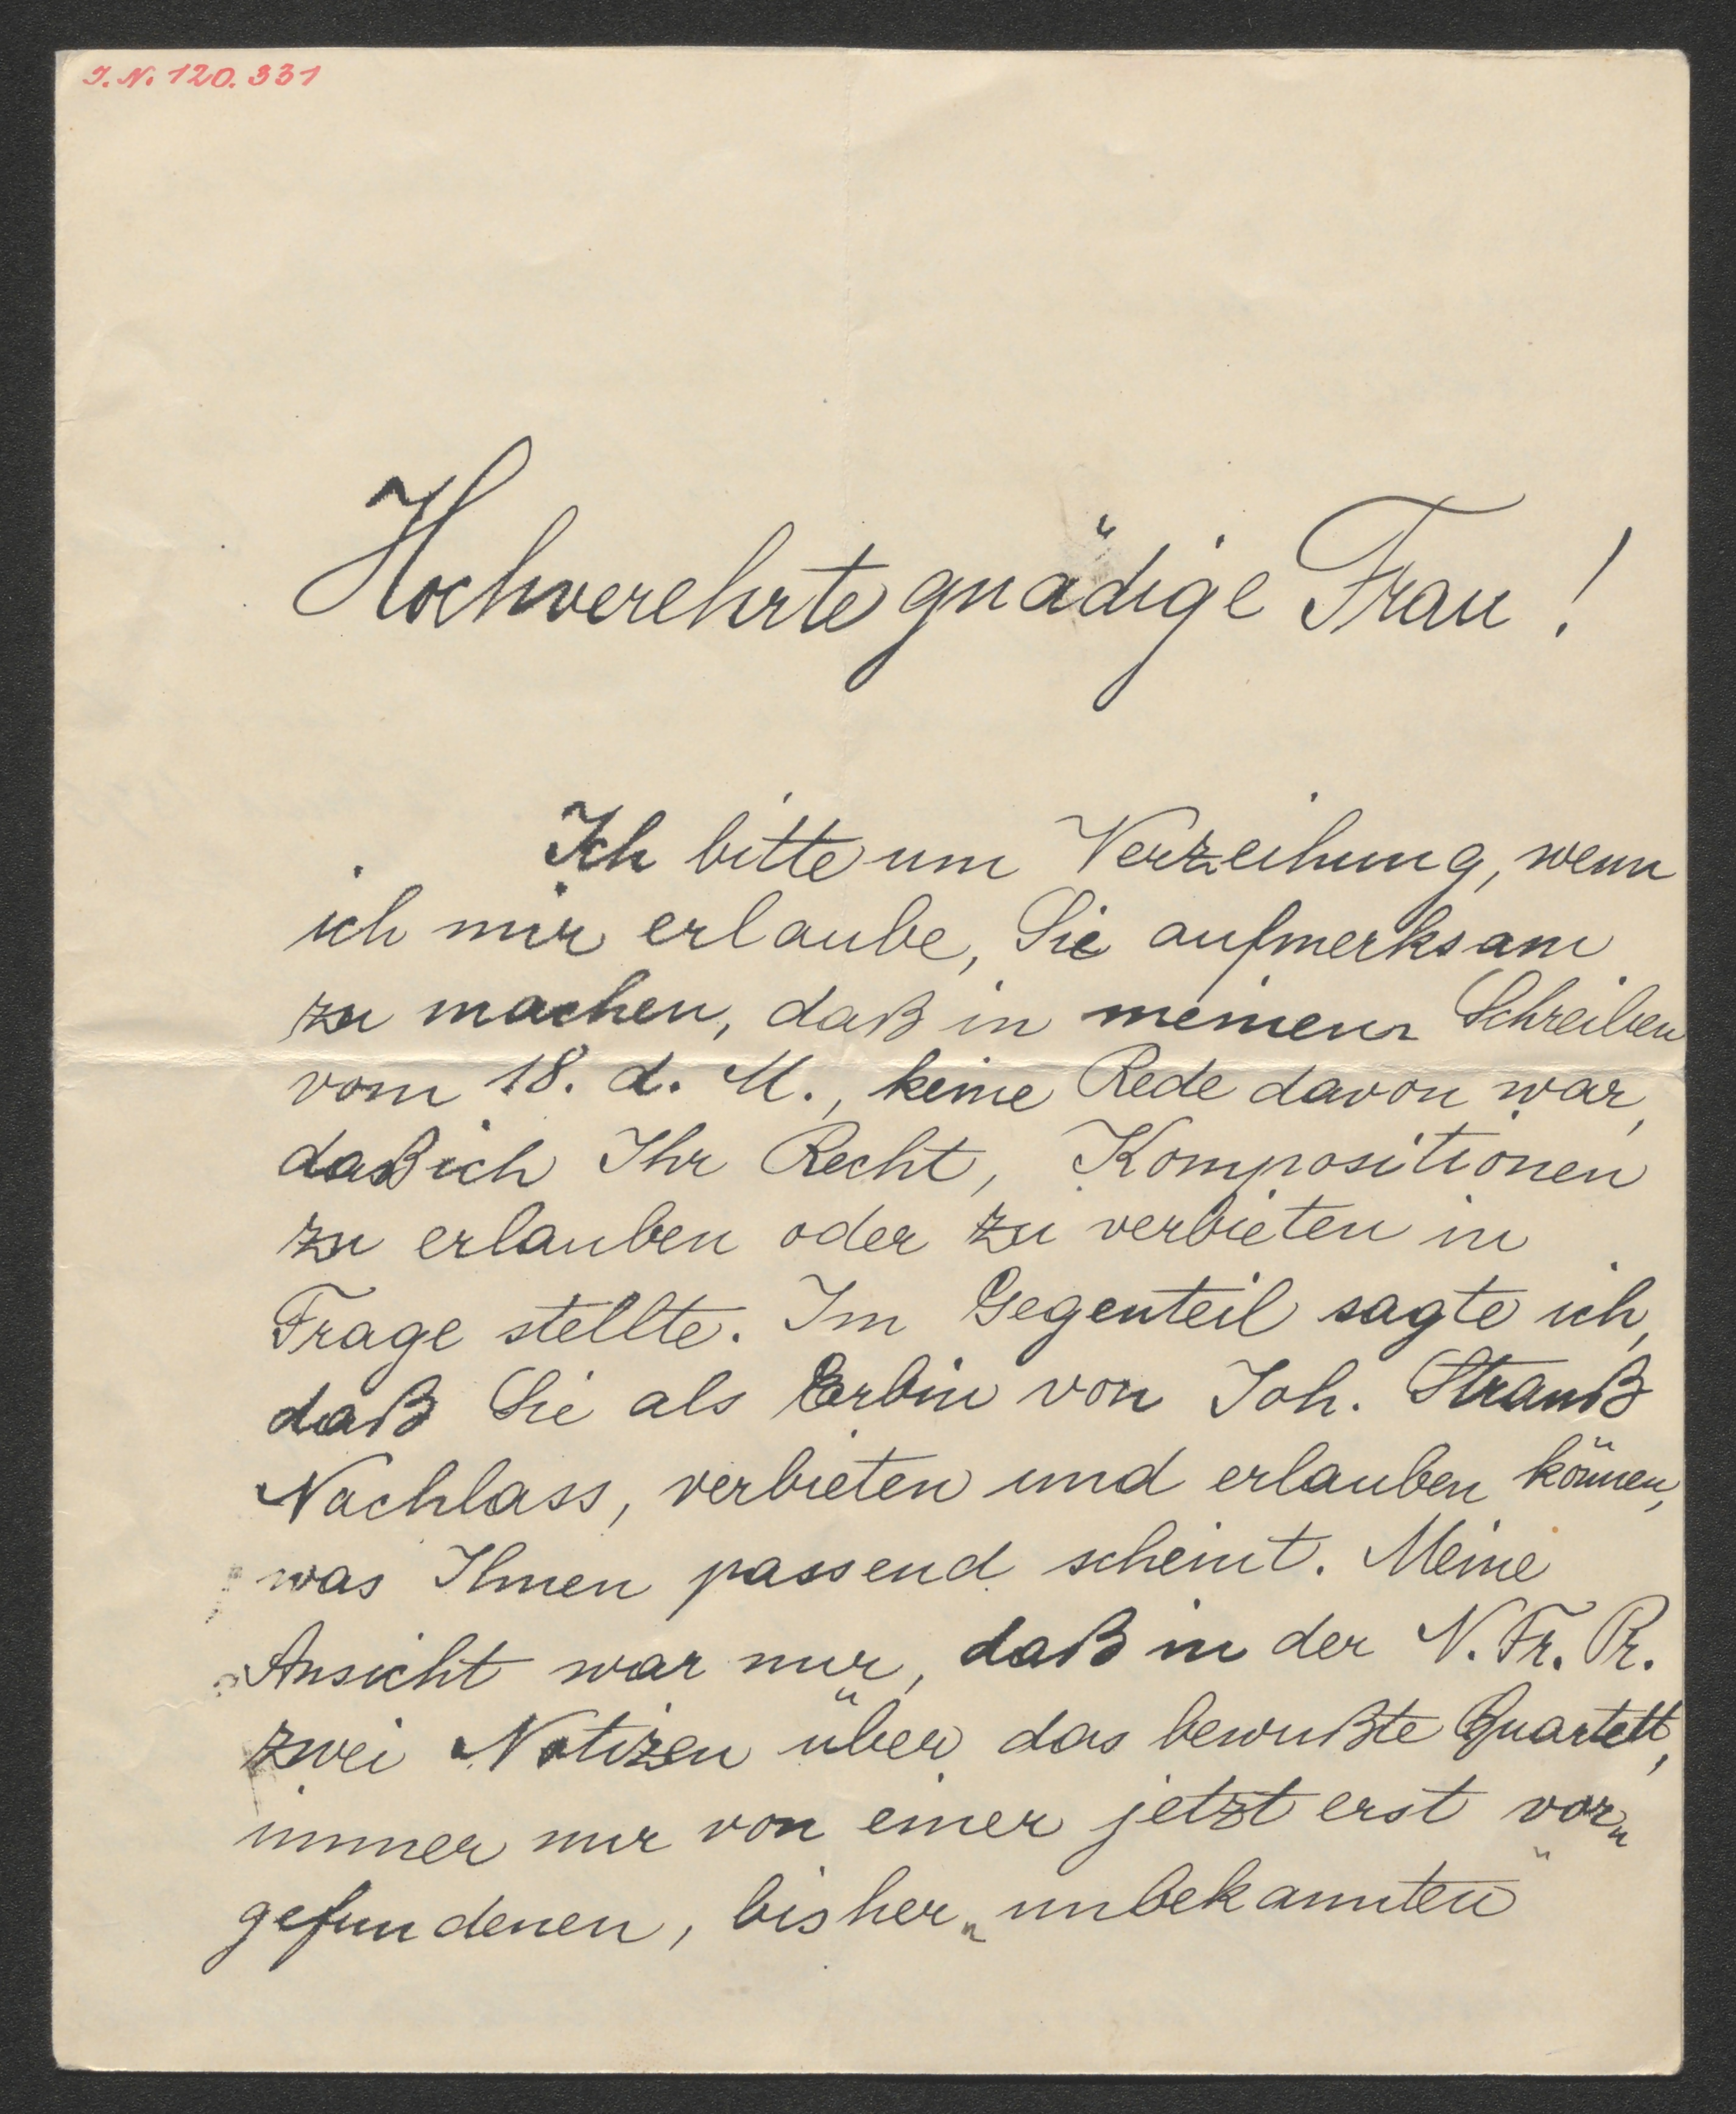 I. N. 120.331
Hochverehrte gnädige Frau!
Ich bitte um Verzeihung, wenn
ich mir erlaube, Sie aufmerksam
zu machen, daß in meinem Schreiben
vom 18. d. M., keine Rede davon war,
daß ich Ihr Recht, Kompositionen
zu erlauben oder zu verbieten in
Frage stellte. Im Gegenteil sagte ich,
daß Sie als Erbin von Joh. Strauß
Nachlass, verbieten und erlauben können,
was Ihnen passend scheint. Meine
Ansicht war nur, daß in der N. Fr. Pr.
zwei Notizen über das bewußte Quartett,
immer nur von einer jetzt erst vor„
gefundenen, bisher „unbekannten"